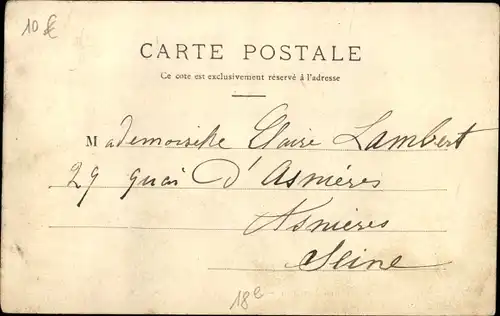 10 €
CARTE POSTALE
Ce cote est exclusivement réservé à l'adresse
Mademoiselle Claire Lambert
29 quai D'Asnières
Asnières
Seine
18e